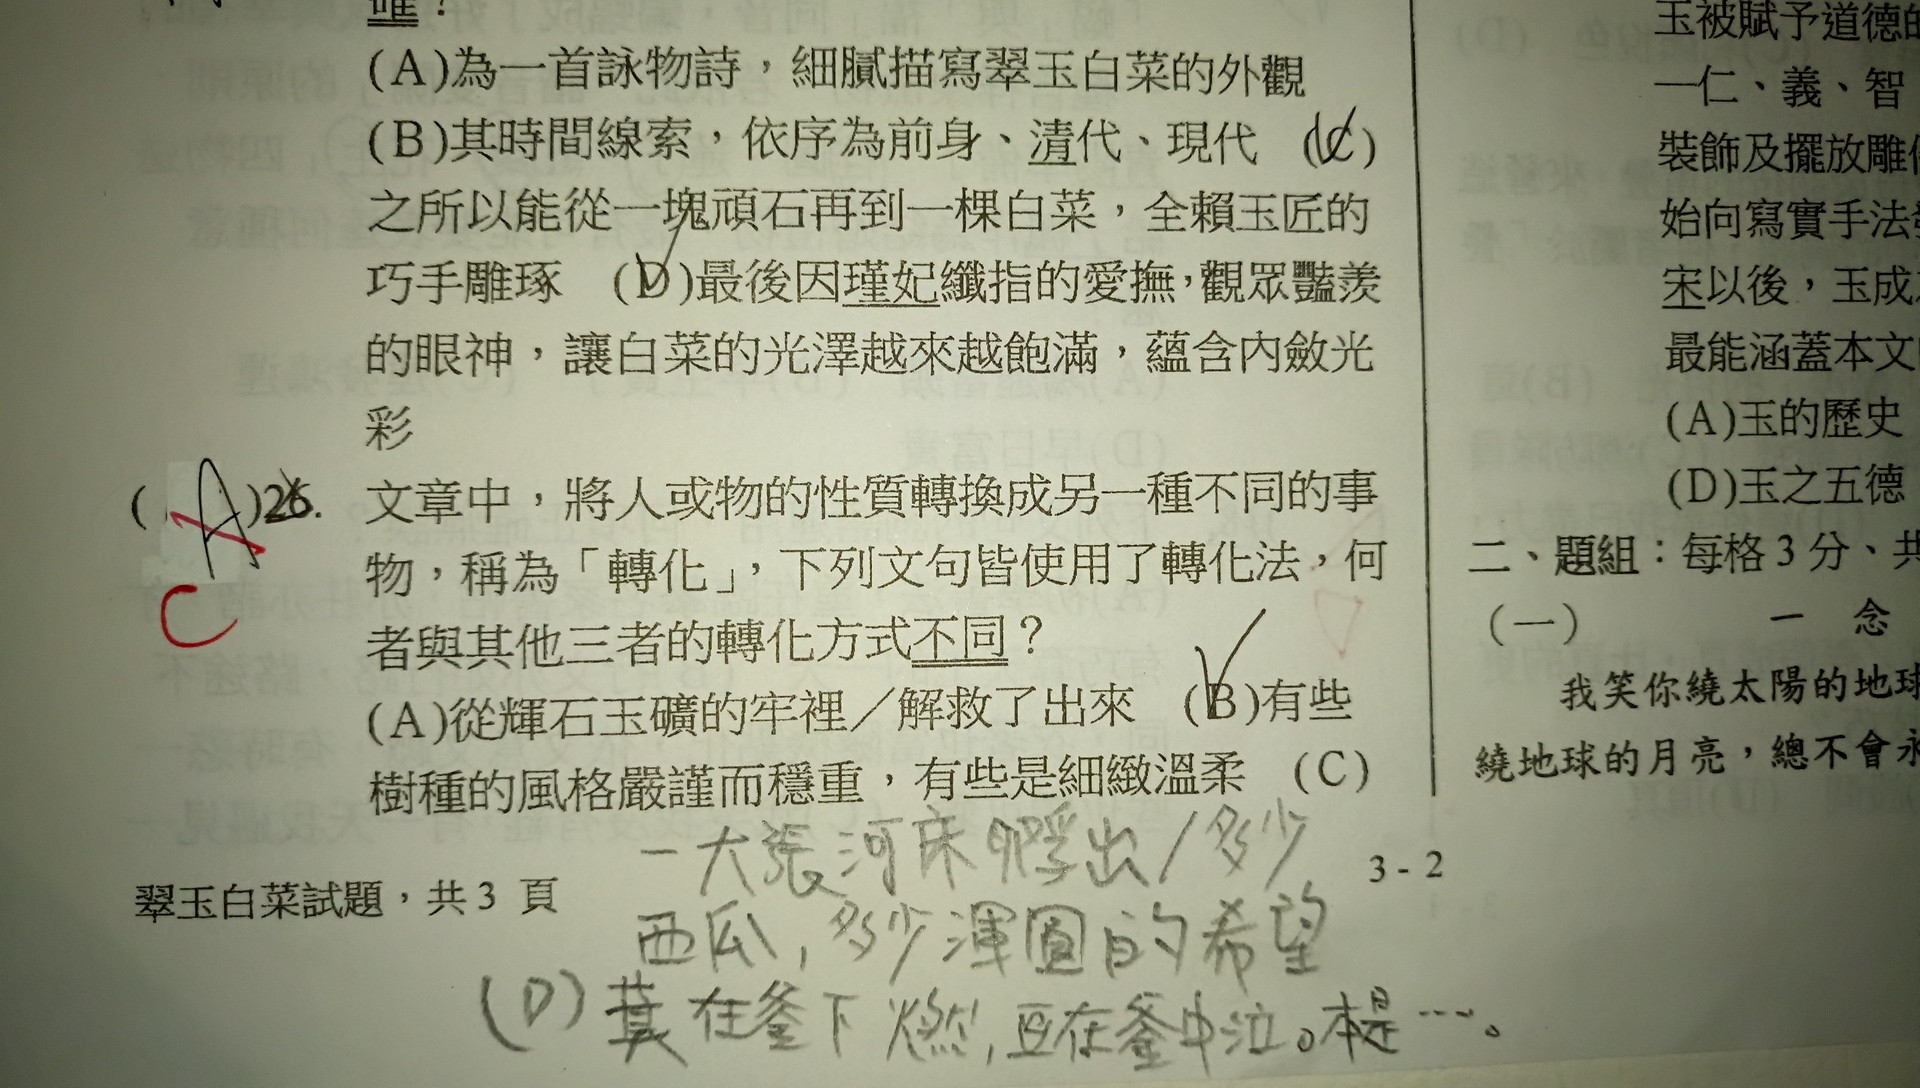 (A)為一首詠物詩，細膩描寫翠玉白菜的外觀
(B)其時間線索，依序為前身、清代、現代 (C)
之所以能從一塊頑石再到一棵白菜，全賴玉匠的
巧手雕琢 (D)最後因瑾妃纖指的愛撫，觀眾豔羨
的眼神，讓白菜的光澤越來越飽滿，蘊含內斂光
彩
( A )26. 文章中，將人或物的性質轉換成另一種不同的事
C
物，稱為「轉化」，下列文句皆使用了轉化法，何
者與其他三者的轉化方式不同？
(A)從輝石玉礦的牢裡／解救了出來 (B)有些
樹種的風格嚴謹而穩重，有些是細緻溫柔 (C)
一大張河床孵出/多少
西瓜，多少渾圓的希望
(D)萁在釜下燃，豆在釜中泣。本是……。
翠玉白菜試題，共3 頁
3-2
玉被賦予道德的
一仁、義、智
裝飾及擺放雕
始向寫實手法
宋以後，玉成
最能涵蓋本文
(A)玉的歷史
(D)玉之五德
二、題組：每格3分、共
（一） 一 念
我笑你繞太陽的地球
繞地球的月亮，總不會永